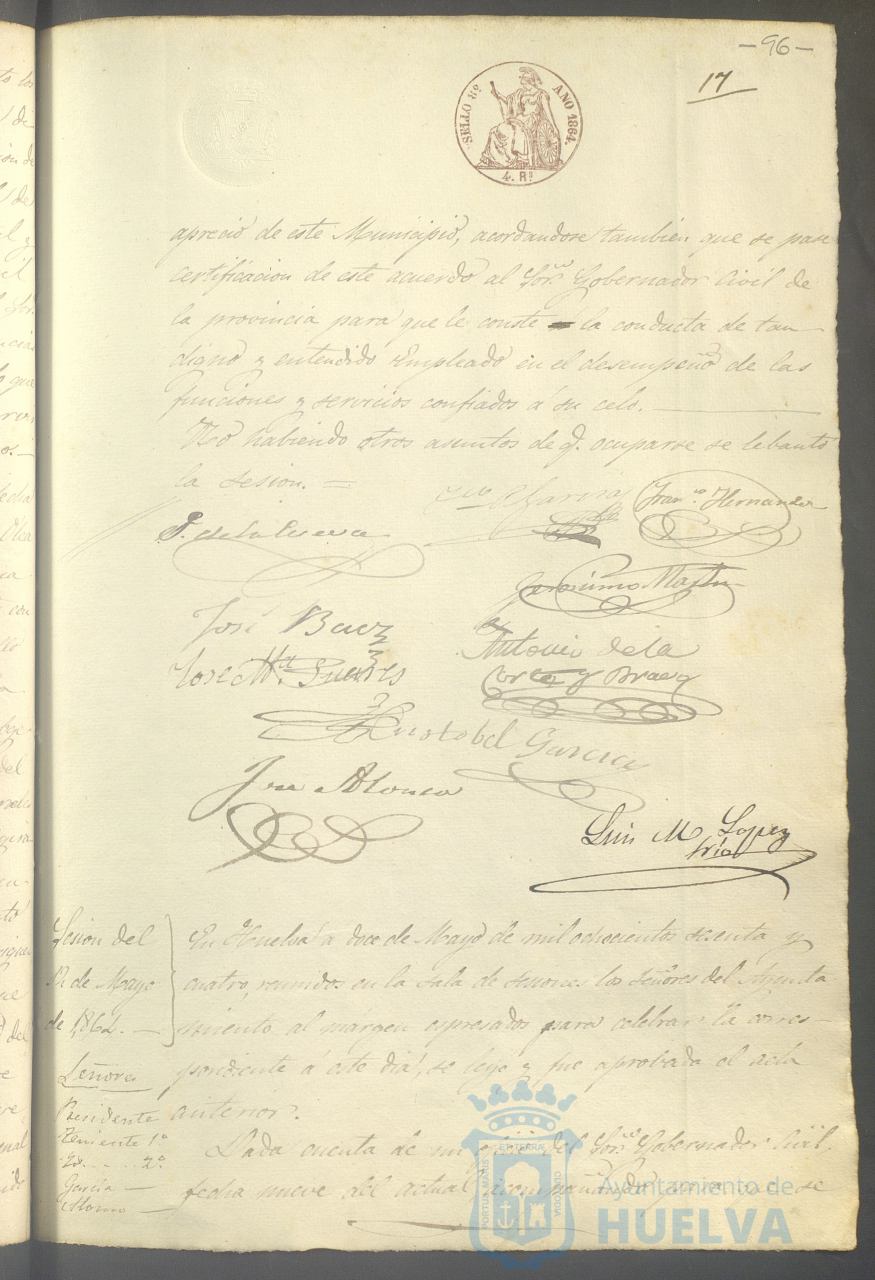 -96-
17
SELLO 8º AÑO 1864.
4. Rˢ
aprecio de este Municipio, acordandose tambien que se pase
certificacion de este acuerdo al Sor. Gobernador Civil de
la provincia para que le conste la conducta de tan
digno y entendido Empleado en el desempeño de las
funciones y servicios confiados á su celo.
No habiendo otros asuntos de q. ocuparse se lebantó
la sesion. =
García
Franco. Hernandez
P. de la Cueva
Geronimo Martin
José Baez
Antonio de la
Jose Mª. Suares
Corte y Braeq
Cristobal Garcia
Jose Alonso
Luis M. Lopez
srio
Sesion del
12 de Mayo
de 1864.
Señores
Presidente
Teniente 1º
Id. . . . 2º
García
Alonso
En Huelva á doce de Mayo de mil ochocientos sesenta y
cuatro, reunidos en la sala de sesiones los Señores del Ayunta
miento al márgen espresados para celebrar la corres-
pondiente á este dia, se leyó y fue aprobada el acta
anterior.
Dada cuenta de un oficio del Sor. Gobernador Civil
fecha nueve del actual acompañando para que se
PORTUS MARIS ET TERRÆ CUSTODIA
Ayuntamiento de
HUELVA